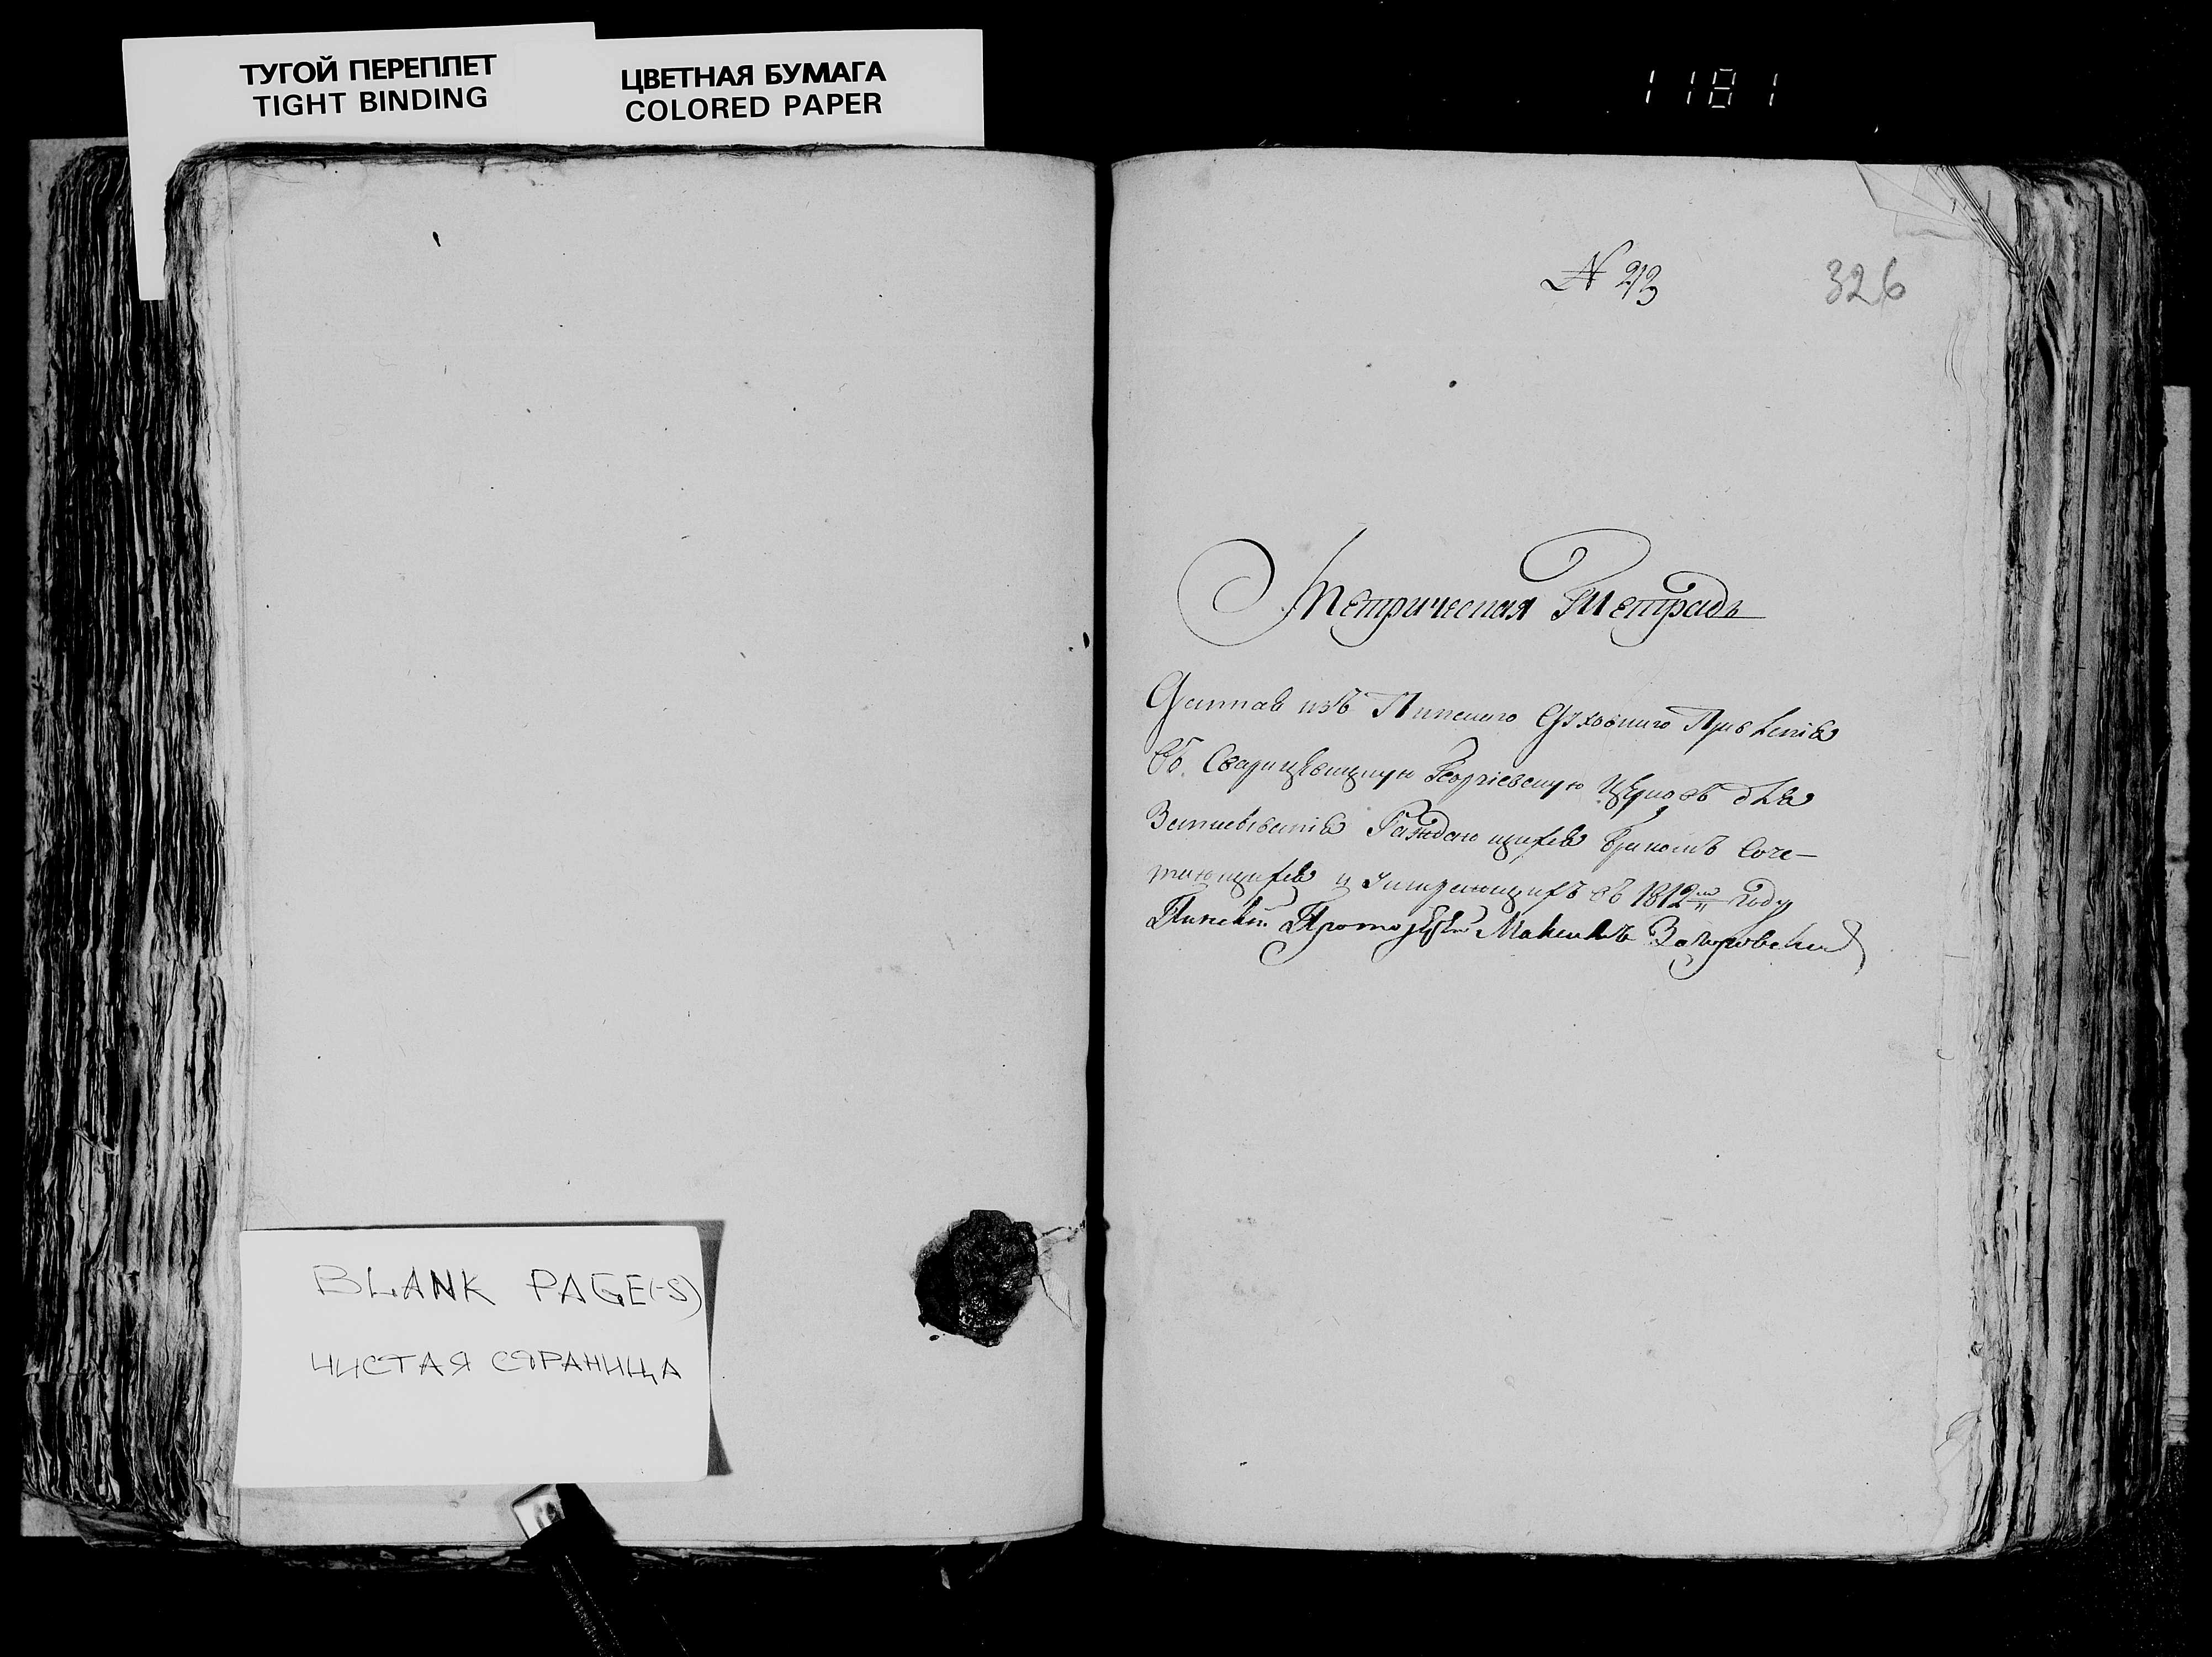 ТУГОЙ ПЕРЕПЛЕТ
TIGHT BINDING
ЦВЕТНАЯ БУМАГА
COLORED PAPER
1181
N 23
326
Метрическая Тетрадь
Данная изъ Пинского Духовного Правленiя
Въ Сварицевицкую Георгiевскую Церковъ для
Записыванiя Раждающихся Бракомъ Соче-
тающихся и Умирающихъ въ 1812м году
Пинскiй Протоiерей
BLANK PAGE(-S)
ЧИСТАЯ СТРАНИЦА